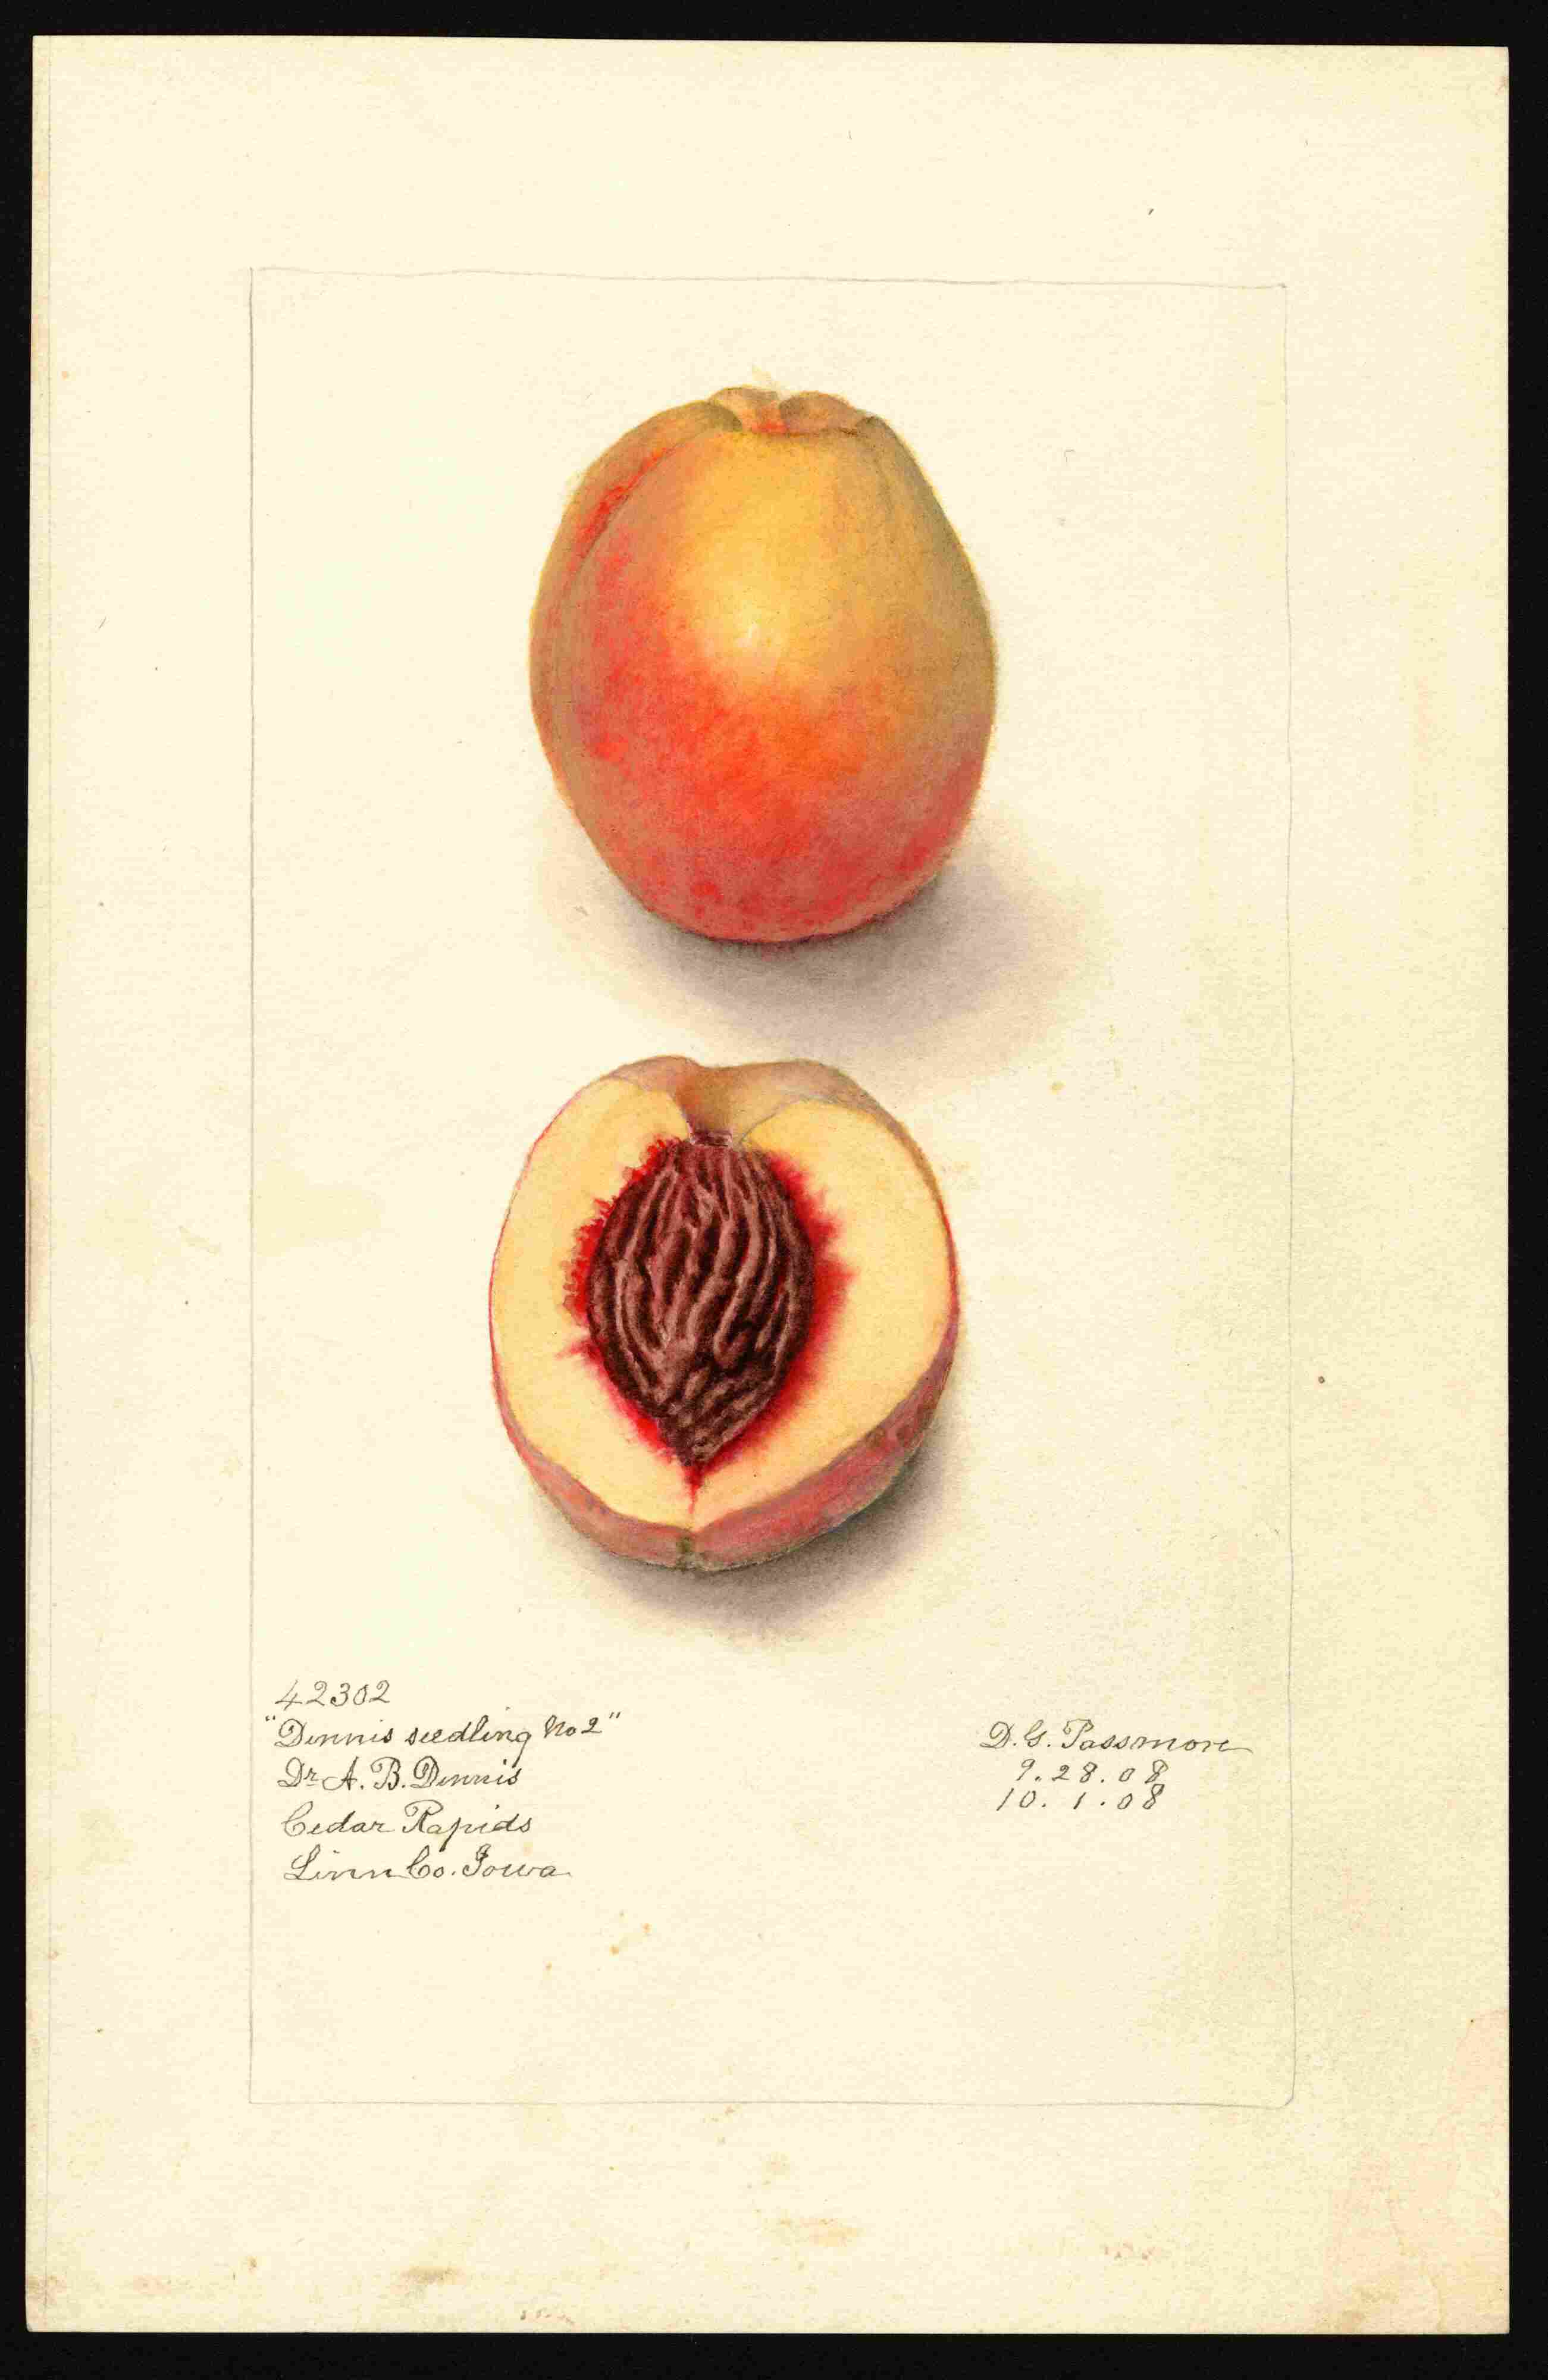 42302
"Dennis seedling No 2"
Dr. A. B. Dennis
Cedar Rapids
Linn Co. Iowa.
D. G. Passmore
9.28.08
10.1.08